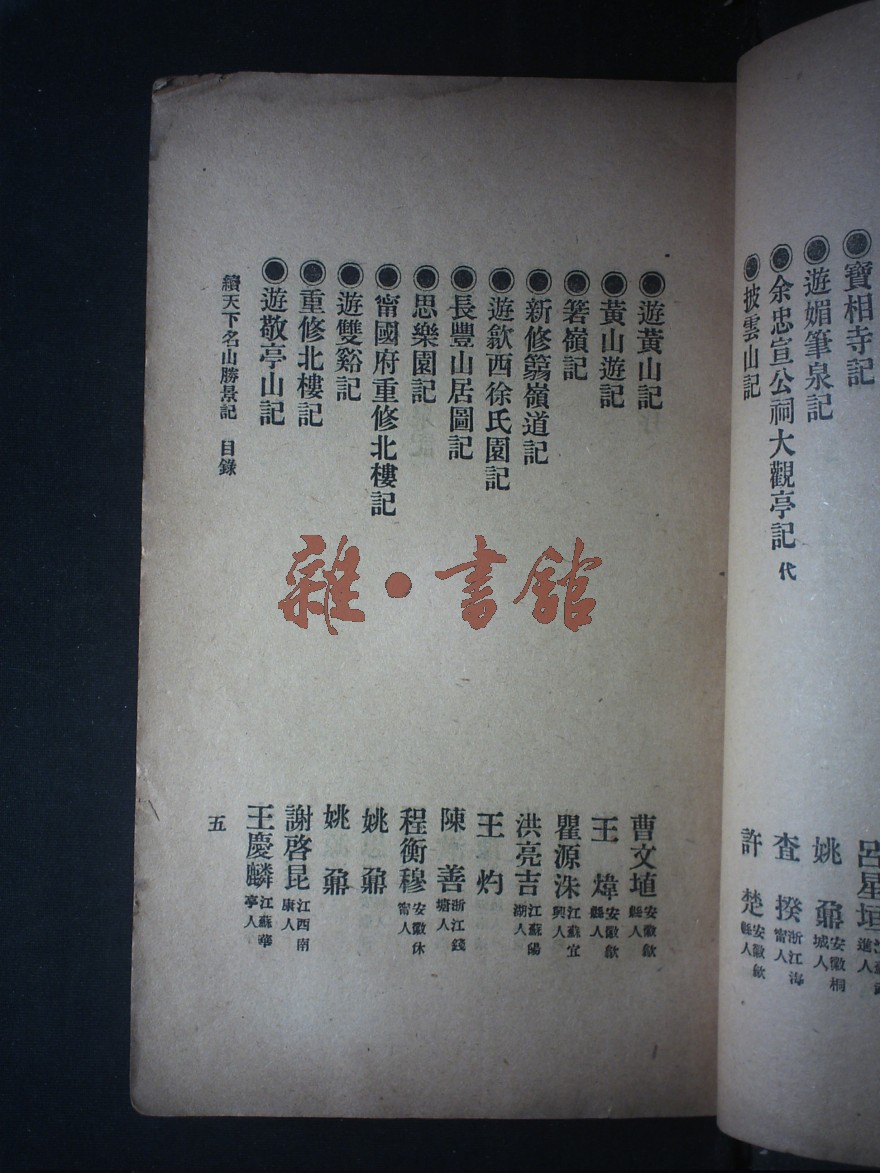 ●寶相寺記　呂星垣
●遊媚筆泉記　姚鼐安徽桐城人
●余忠宣公祠大觀亭記代　査揆浙江海甯人
●披雲山記　許楚安徽歙縣人
●遊黃山記　曹文埴安徽歙縣人
●黃山遊記　王煒安徽歙縣人
●箬嶺記　瞿源洙江蘇宜興人
●新修箬嶺道記　洪亮吉江蘇陽湖人
●遊歙西徐氏園記　王灼
●長豐山居圖記　陳善浙江錢塘人
●思樂園記　程衡穆安徽休甯人
●甯國府重修北樓記　姚鼐
●遊雙谿記　姚鼐
●重修北樓記　謝啓昆江西南康人
●遊敬亭山記　王慶麟江蘇華亭人
續天下名山勝景記　目錄　五
雜·書館